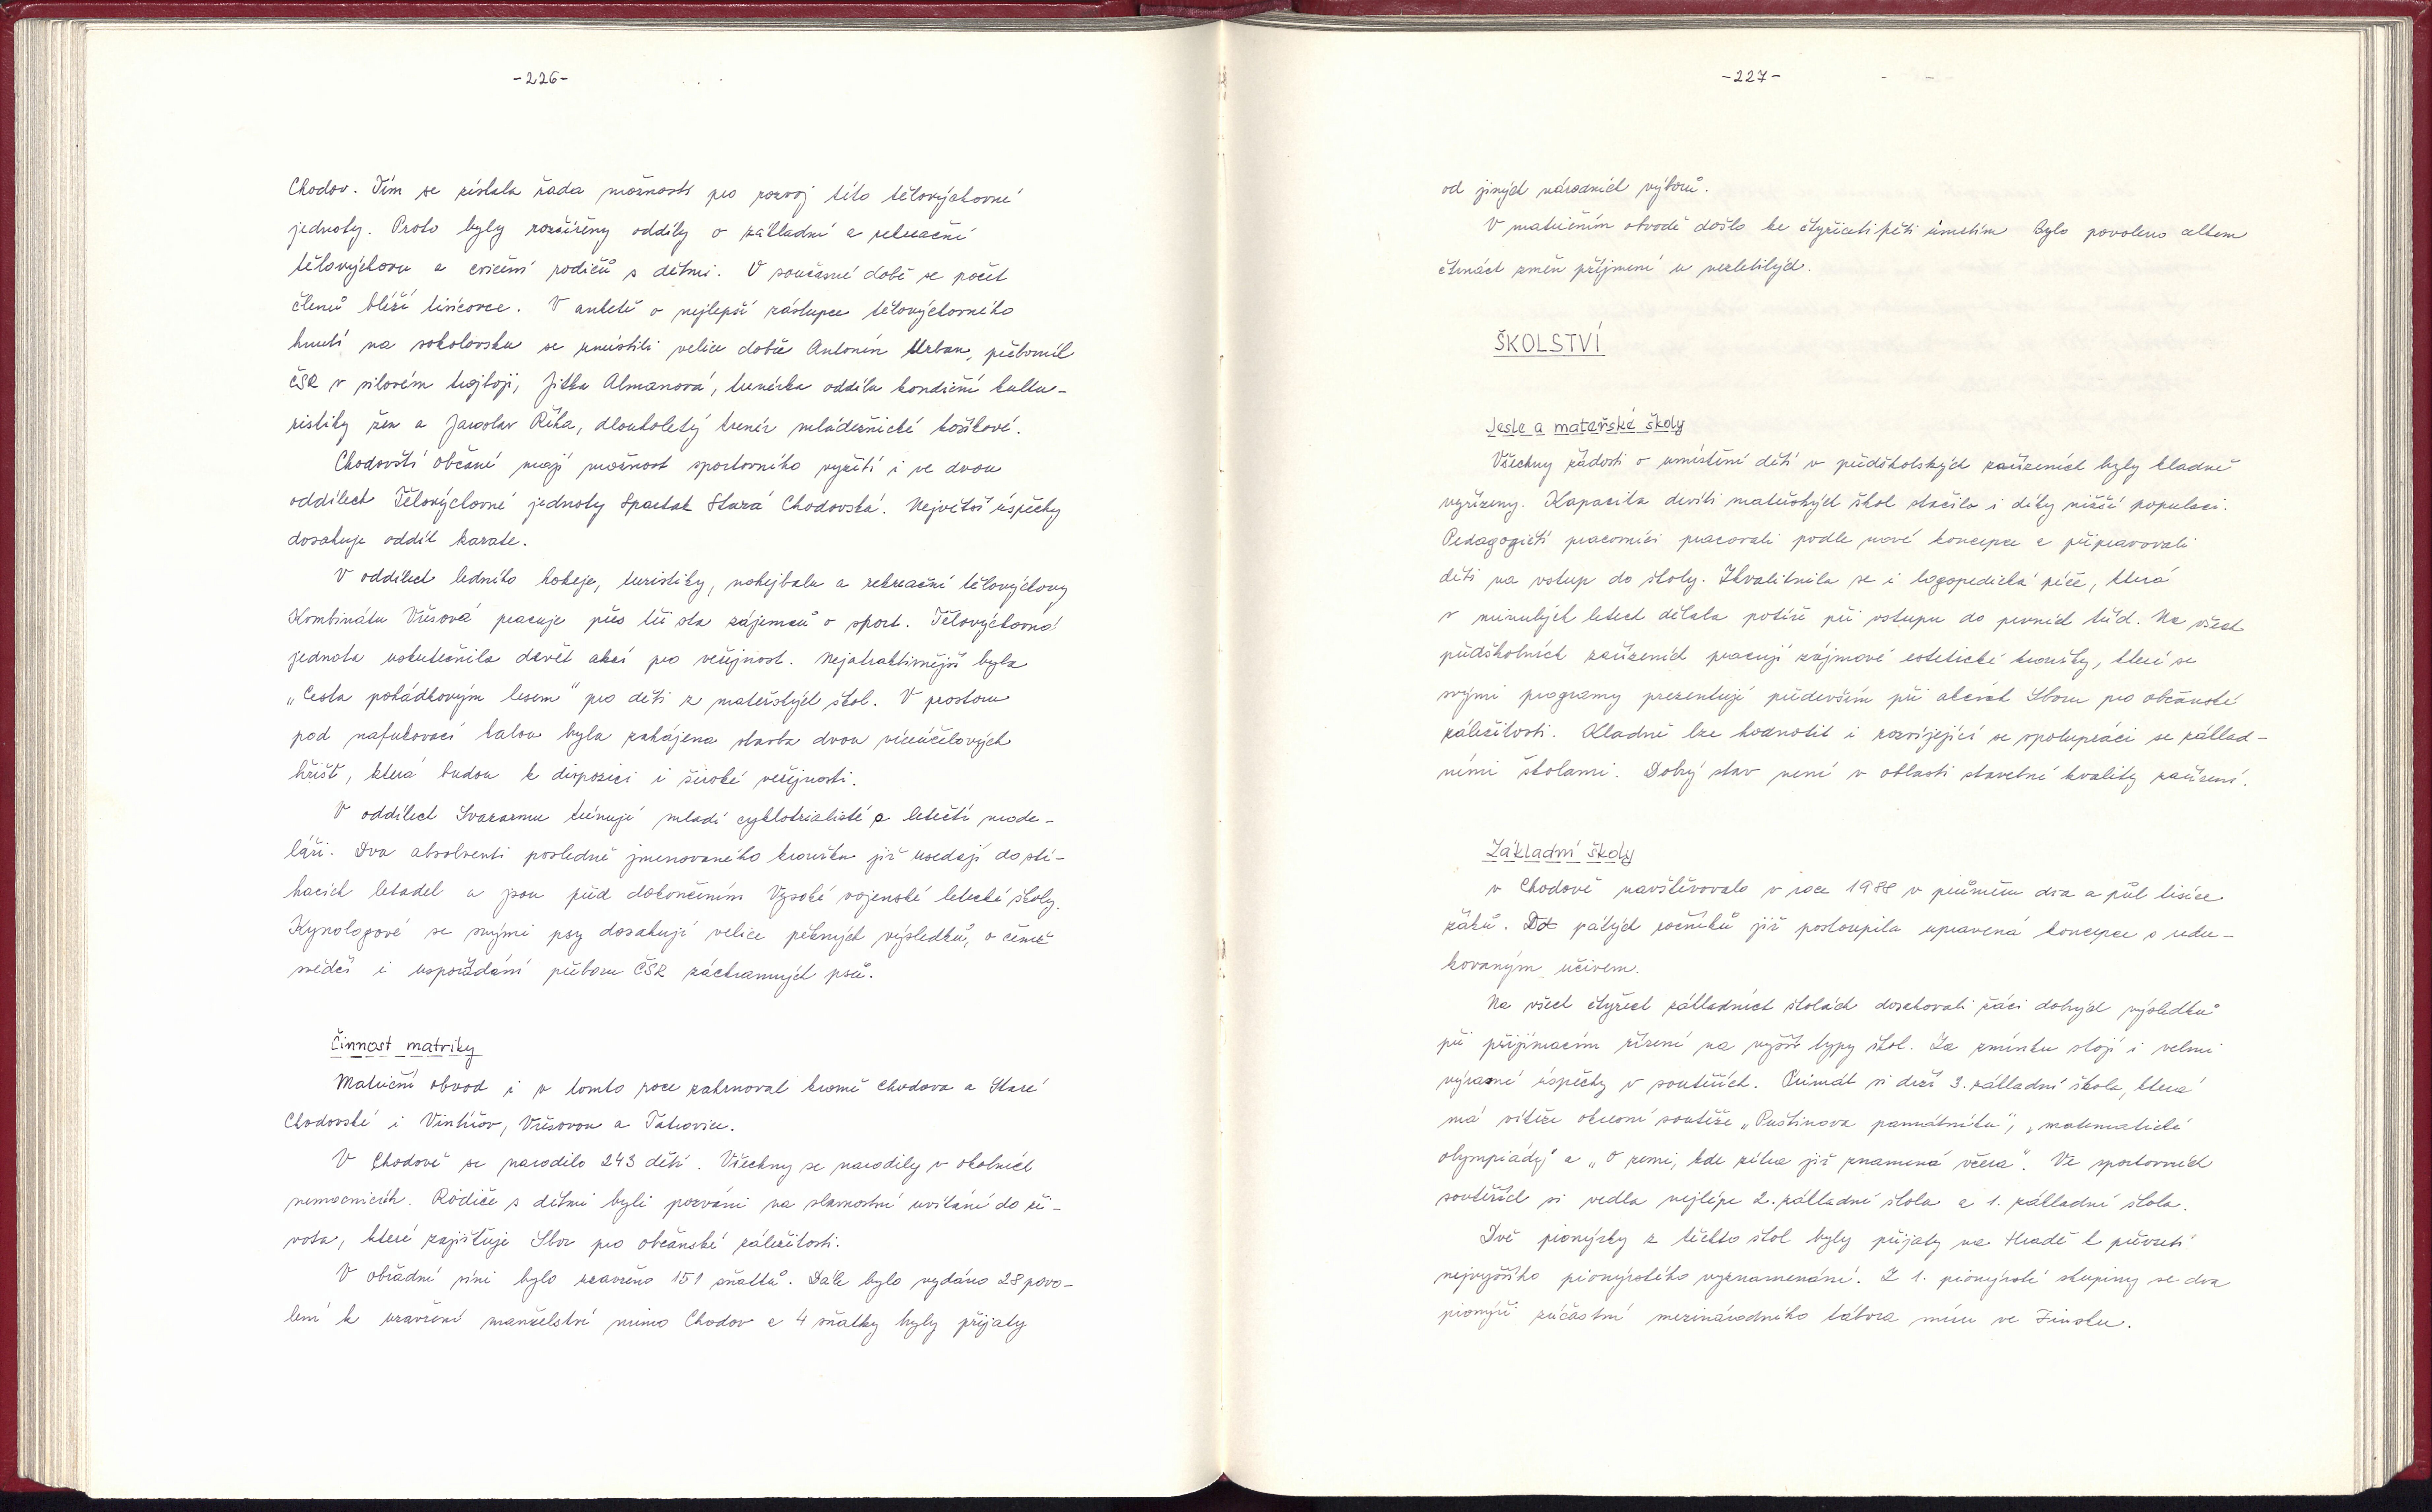 -226-
Chodov. Tím se získala řada možností pro rozvoj této tělovýchovné
jednoty. Proto byly rozšířeny oddíly o základní a rekreační
tělovýchovu a cvičení rodičů s dětmi. V současné době se počet
členů blíží tisícovce. V anketě o nejlepší zástupce tělovýchovného
hnutí na sokolovsku se umístili velice dobře Antonín Urban, přeborník
ČSR v silovém trojboji, Jitka Almanová, trenérka oddílu kondiční kultu-
ristiky žen a Jaroslav Říha, dlouholetý trenér mládežnické košíkové.
Chodovští občané mají možnost sportovního vyžití i ve dvou
oddílech Tělovýchovné jednoty Spartak Stará Chodovská. Největší úspěchy
dosahuje oddíl karate.
V oddílech ledního hokeje, turistiky, nohejbalu a rekreační tělovýchovy
Kombinátu Vřesová pracuje přes tři sta zájemců o sport. Tělovýchovná
jednota uskutečnila devět akcí pro veřejnost. Nejatraktivnější byla
„Cesta pohádkovým lesem" pro děti z mateřských škol. V prostoru
pod nafukovací halou byla zahájena stavba dvou víceúčelových
hřišť, která budou k dispozici i široké veřejnosti.
V oddílech Svazarmu trénují mladí cyklotrialisté a letečtí mode-
láři. Dva absolventi posledně jmenovaného kroužku již usedají do stí-
hacích letadel a jsou před dokončením Vysoké vojenské letecké školy.
Kynologové se svými psy dosahují velice pěkných výsledků, o čemž
svědčí i uspořádání přeboru ČSR záchranných psů.
Činnost matriky
Matriční obvod i v tomto roce zahrnoval kromě Chodova a Staré
Chodovské i Vintířov, Vřesovou a Tatrovice.
V Chodově se narodilo 243 dětí. Všechny se narodily v okolních
nemocnicích. Rodiče s dětmi byli pozváni na slavnostní uvítání do ži-
vota, které zajišťuje Sbor pro občanské záležitosti.
V obřadní síni bylo uzavřeno 151 sňatků. Dále bylo vydáno 28 povo-
lení k uzavření manželství mimo Chodov a 4 sňatky byly přijaty
-227-
od jiných národních výborů.
V matričním obvodě došlo ke čtyřiceti pěti úmrtím. Bylo povoleno celkem
čtrnáct změn příjmení u nezletilých.
ŠKOLSTVÍ
Jesle a mateřské školy
Všechny žádosti o umístění dětí v předškolských zařízeních byly kladně
vyřízeny. Kapacita devíti mateřských škol stačila i díky nižší populaci.
Pedagogičtí pracovníci pracovali podle nové koncepce a připravovali
děti na vstup do školy. Zkvalitnila se i logopedická péče, která
v minulých letech dělala potíže při vstupu do prvních tříd. Na všech
předškolních zařízeních pracují zájmové estetické kroužky, které se
svými programy prezentují především při akcích Sboru pro občanské
záležitosti. Kladně lze hodnotit i rozvíjející se spolupráci se základ-
ními školami. Dobrý stav není v oblasti stavební kvality zařízení.
Základní školy
v Chodově navštěvovalo v roce 1988 v průměru dva a půl tisíce
žáků. Do pátých ročníků již postoupila upravená koncepce s redu-
kovaným učivem.
Na všech čtyřech základních školách dosahovali žáci dobrých výsledků
při přijímacím řízení na vyšší typy škol. Za zmínku stojí i velmi
výrazné úspěchy v soutěžích. Primát si drží 3. základní škola, která
má vítěze okresní soutěže „Puškinova památníku", „matematické
olympiády" a „O zemi, kde zítra již znamená včera". Ve sportovních
soutěžích si vedla nejlépe 2. základní škola a 1. základní škola.
Dvě pionýrky z těchto škol byly přijaty na Hradě k převzetí
nejvyššího pionýrského vyznamenání. Z 1. pionýrské skupiny se dva
pionýři zúčastní mezinárodního tábora míru ve Finsku.